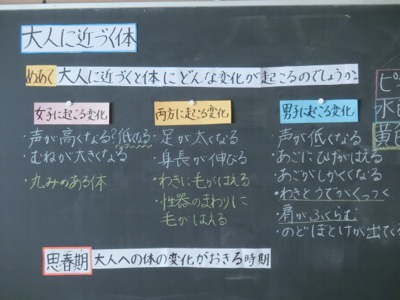 大人に近づく体
めあて 大人に近づくと体にどんな変化が起こるのでしょうか
女子に起こる変化
・声が高くなる?低くなる
・むねが大きくなる
・丸みのある体
両方に起こる変化
・足が太くなる
・身長が伸びる
・わきに毛がはえる
・性器のまわりに
毛がはえる
男子に起こる変化
・声が低くなる
・あごにひげがはえる
・あごがしかくくなる
・わきとうでがくっつく
・肩がふくらむ
・のどぼとけが出てくる
思春期 大人への体の変化がおきる時期
ピ
水色
黄色